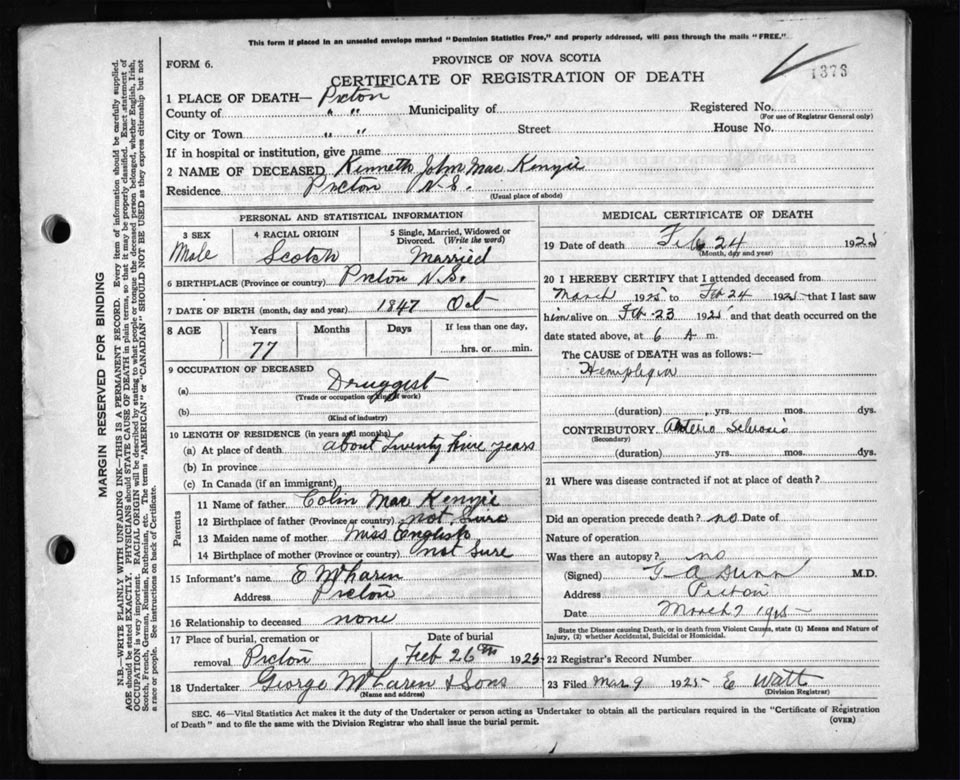 This form if placed in an unsealed envelope marked "Dominion Statistics Free," and properly addressed, will pass through the mails "FREE."
FORM 6.
PROVINCE OF NOVA SCOTIA
1373
CERTIFICATE OF REGISTRATION OF DEATH
1 PLACE OF DEATH— Picton
County of " " Municipality of Registered No.
(For use of Registrar General only)
City or Town " " Street House No.
If in hospital or institution, give name
2 NAME OF DECEASED Kenneth John Mac Kenzie
Residence Picton N.S.
(Usual place of abode)
PERSONAL AND STATISTICAL INFORMATION
3 SEX Male
4 RACIAL ORIGIN Scotch
5 Single, Married, Widowed or Divorced. (Write the word) Married
6 BIRTHPLACE (Province or country) Picton N.S.
7 DATE OF BIRTH (month, day and year) 1847 Oct
8 AGE Years 77 Months Days If less than one day, hrs. or min.
9 OCCUPATION OF DECEASED
(a) Druggest
(Trade or occupation or kind of work)
(b)
(Kind of industry)
10 LENGTH OF RESIDENCE (in years and months)
(a) At place of death about Twenty Five years
(b) In province
(c) In Canada (if an immigrant)
Parents
11 Name of father Colin Mac Kenzie
12 Birthplace of father (Province or country) not Sure
13 Maiden name of mother Miss English
14 Birthplace of mother (Province or country) not Sure
15 Informant's name E McLaren
Address Picton
16 Relationship to deceased none
17 Place of burial, cremation or removal Picton Date of burial Feb 26th 1925
18 Undertaker George McLaren & Sons
(Name and address)
MEDICAL CERTIFICATE OF DEATH
19 Date of death Feb 24 1925
(Month, day and year)
20 I HEREBY CERTIFY that I attended deceased from
March 1925 to Feb 24 1925 that I last saw
him alive on Feb 23 1925 and that death occurred on the
date stated above, at 6 A m.
The CAUSE of DEATH was as follows:—
Hemplegia
(duration) yrs. mos. dys.
CONTRIBUTORY Arterio Sclerosis
(Secondary)
(duration) yrs. mos. dys.
21 Where was disease contracted if not at place of death?
Did an operation precede death? no Date of
Nature of operation
Was there an autopsy? no
(Signed) G A Dunn M.D.
Address Picton
Date March 7 1925
State the Disease causing Death, or in death from Violent Causes, state (1) Means and Nature of
Injury, (2) whether Accidental, Suicidal or Homicidal.
22 Registrar's Record Number
23 Filed Mar 9 1925 E Watt
(Division Registrar)
SEC. 46—Vital Statistics Act makes it the duty of the Undertaker or person acting as Undertaker to obtain all the particulars required in the "Certificate of Registration
of Death" and to file the same with the Division Registrar who shall issue the burial permit.
(OVER)
MARGIN RESERVED FOR BINDING
N.B.—WRITE PLAINLY WITH UNFADING INK—THIS IS A PERMANENT RECORD. Every item of information should be carefully supplied.
AGE should be stated EXACTLY. PHYSICIANS should STATE CAUSE OF DEATH in plain terms, so that it may be properly classified. Exact statement of
OCCUPATION is very important. RACIAL ORIGIN will be described by stating to what people or tongue the deceased person belonged, whether English, Irish,
Scotch, French, German, Russian, Ruthenian, etc. The terms "AMERICAN" or "CANADIAN" SHOULD NOT BE USED as they express citizenship but not
a race or people. See instructions on back of Certificate.